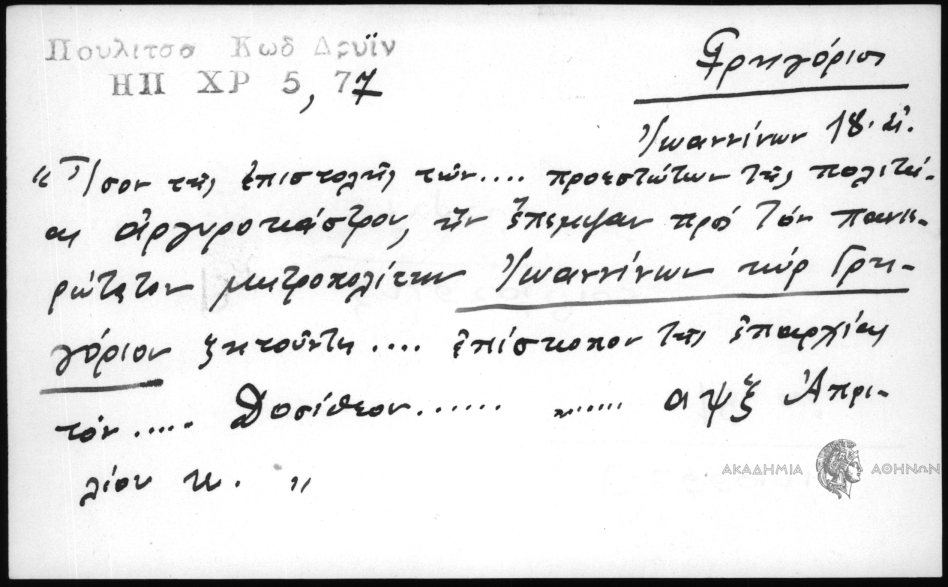 Πουλιτσα Κωδ Δρυϊν
ΗΠ ΧΡ 5, 77
Γρηγόριος
Ἰωαννίνων 18. αἰ.
« Ἴσον τῆς ἐπιστολῆς τῶν.... προεστώτων τῆς πολιτεί-
ας Ἀργυροκάστρου, ἣν ἔπεμψαν πρὸς τὸν πανιε-
ρώτατον μητροπολίτην Ἰωαννίνων κὺρ Γρη-
γόριον ζητοῦντες .... ἐπίσκοπον τῆς ἐπαρχίας
τόν ..... Δοσίθεον...... ...... αψξ Ἀπρι-
λίου κ. »
ΑΚΑΔΗΜΙΑ ΑΘΗΝΩΝ